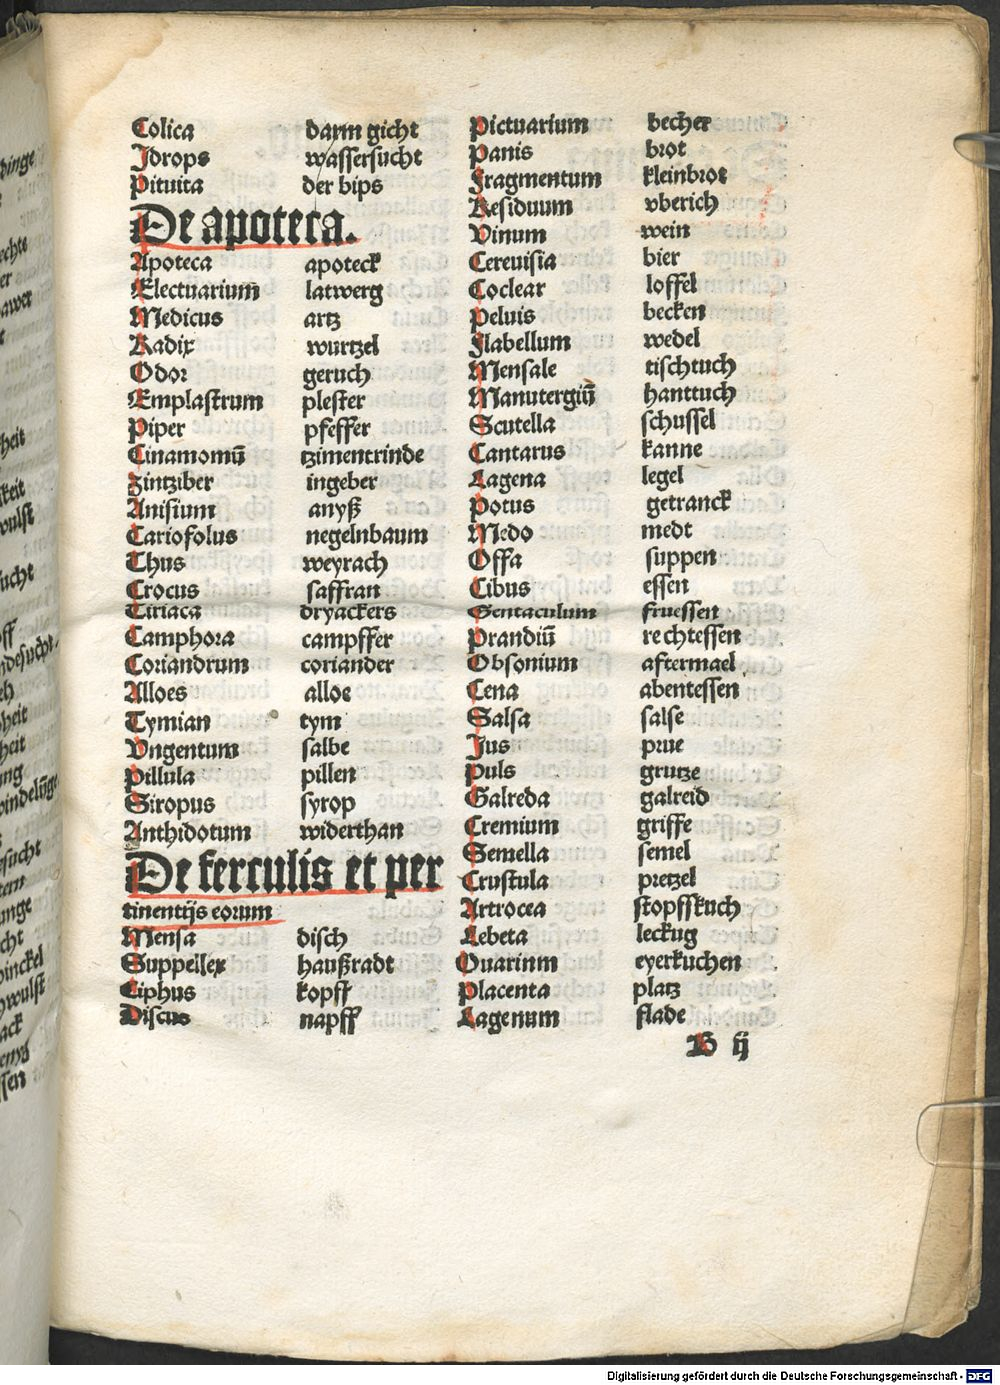 Colica darm gicht
Jdrops wassersucht
Pituita der bips
De apoteca.
Apoteca apoteck
Electuarium̄ latwerg
Medicus artz
Radix wurtzel
Odor geruch
Emplastrum plester
Piper pfeffer
Cinamomū tzimentrinde
Zintziber ingeber
Anisium anyß
Cariofolus negelnbaum
Thus weyrach
Crocus saffran
Tiriaca dryackers
Camphora campffer
Coriandrum coriander
Alloes aloe
Tymian tym
Vngentum salbe
Pillula pillen
Siropus syrop
Anthidotum widerthan
De ferculis et per
tinentijs eorum
Mensa disch
Suppellex haußradt
Ciphus kopff
Discus napff
Pictuarium becher
Panis brot
Fragmentum kleinbrot
Residuum vberich
Vinum wein
Cereuisia bier
Coclear loffel
Peluis becken
Flabellum wedel
Mensale tischtuch
Manutergiū hanttuch
Scutella schussel
Cantarus kanne
Lagena legel
Potus getranck
Medo medt
Offa suppen
Cibus essen
Gentaculum fruessen
Prandiū rechtessen
Obsonium aftermael
Cena abentessen
Salsa salse
Jus prue
Puls grutze
Galreda galreid
Cremium griffe
Semella semel
Crustula pretzel
Artrocea stopffkuch
Lebeta leckug
Ouarinm eyerkuchen
Placenta platz
Lagenum flade
B ij
Digitalisierung gefördert durch die Deutsche Forschungsgemeinschaft - DFG